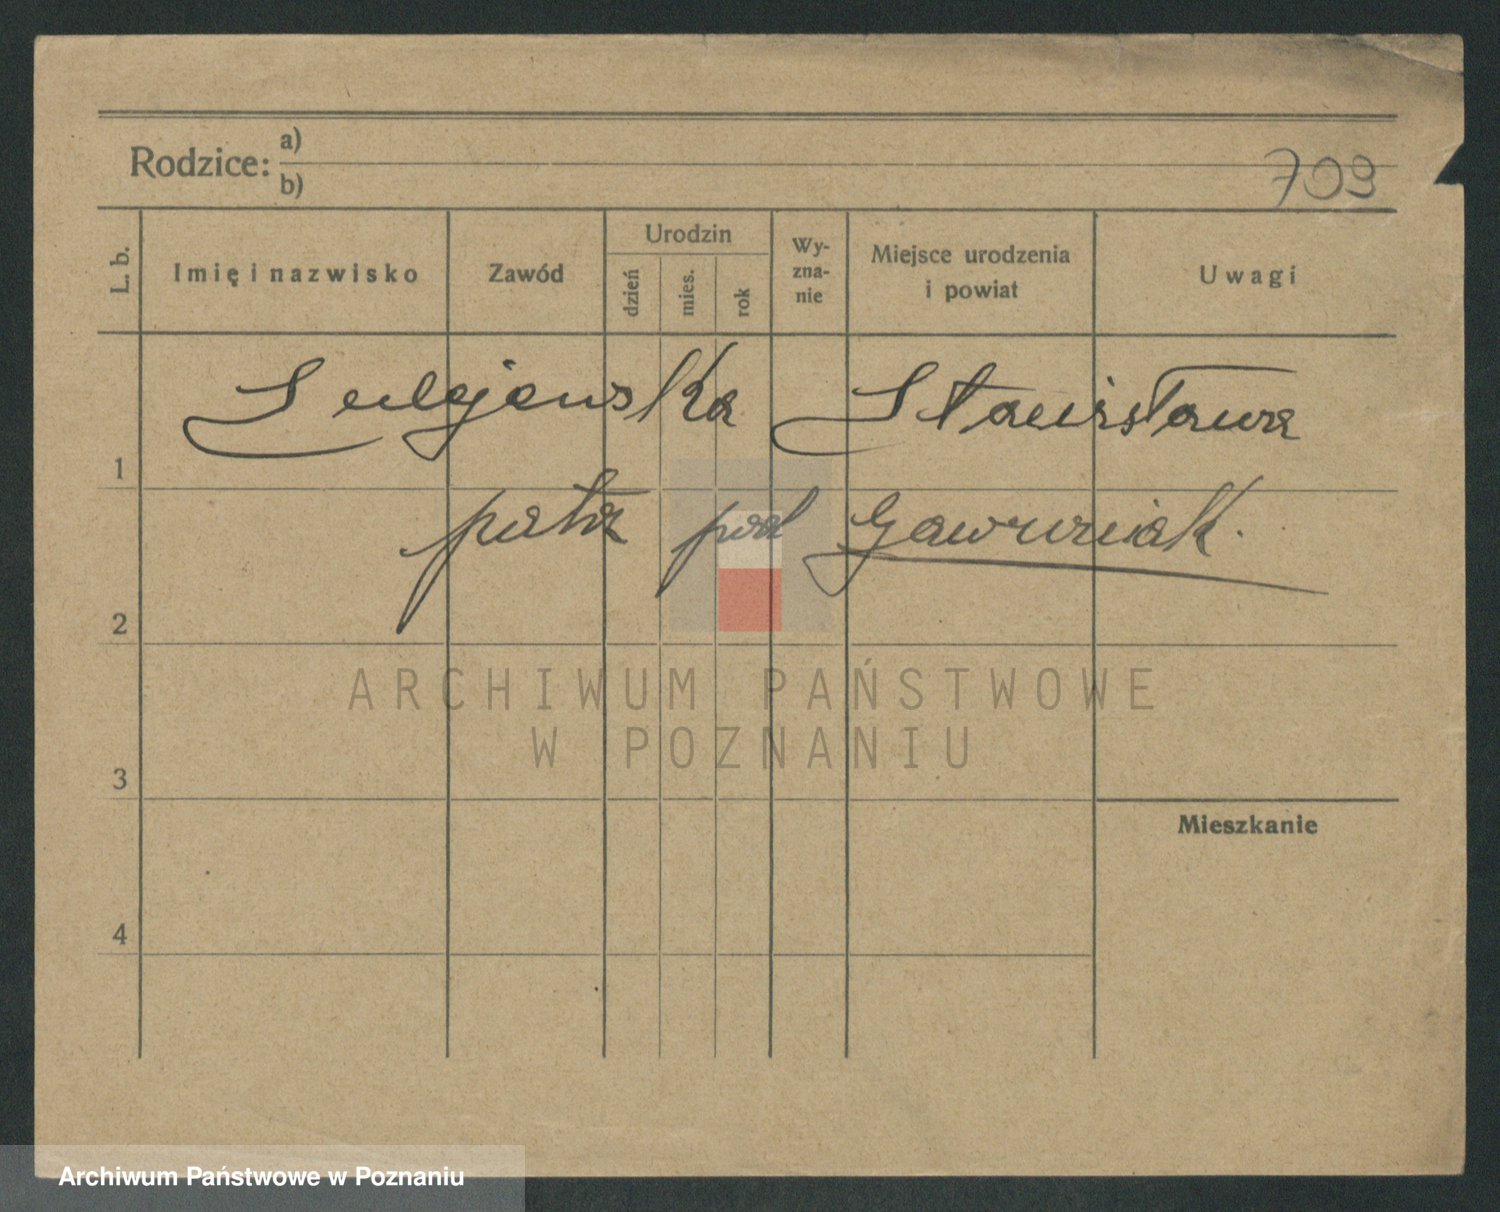 Rodzice: a)
b)
709
L. b.
Imię i nazwisko
Zawód
Urodzin
dzień
mies.
rok
Wy-
zna-
nie
Miejsce urodzenia
i powiat
Uwagi
Sulejewska Stanisława
1
patrz pod Gawroniak.
2
ARCHIWUM PAŃSTWOWE
W POZNANIU
3
Mieszkanie
4
Archiwum Państwowe w Poznaniu